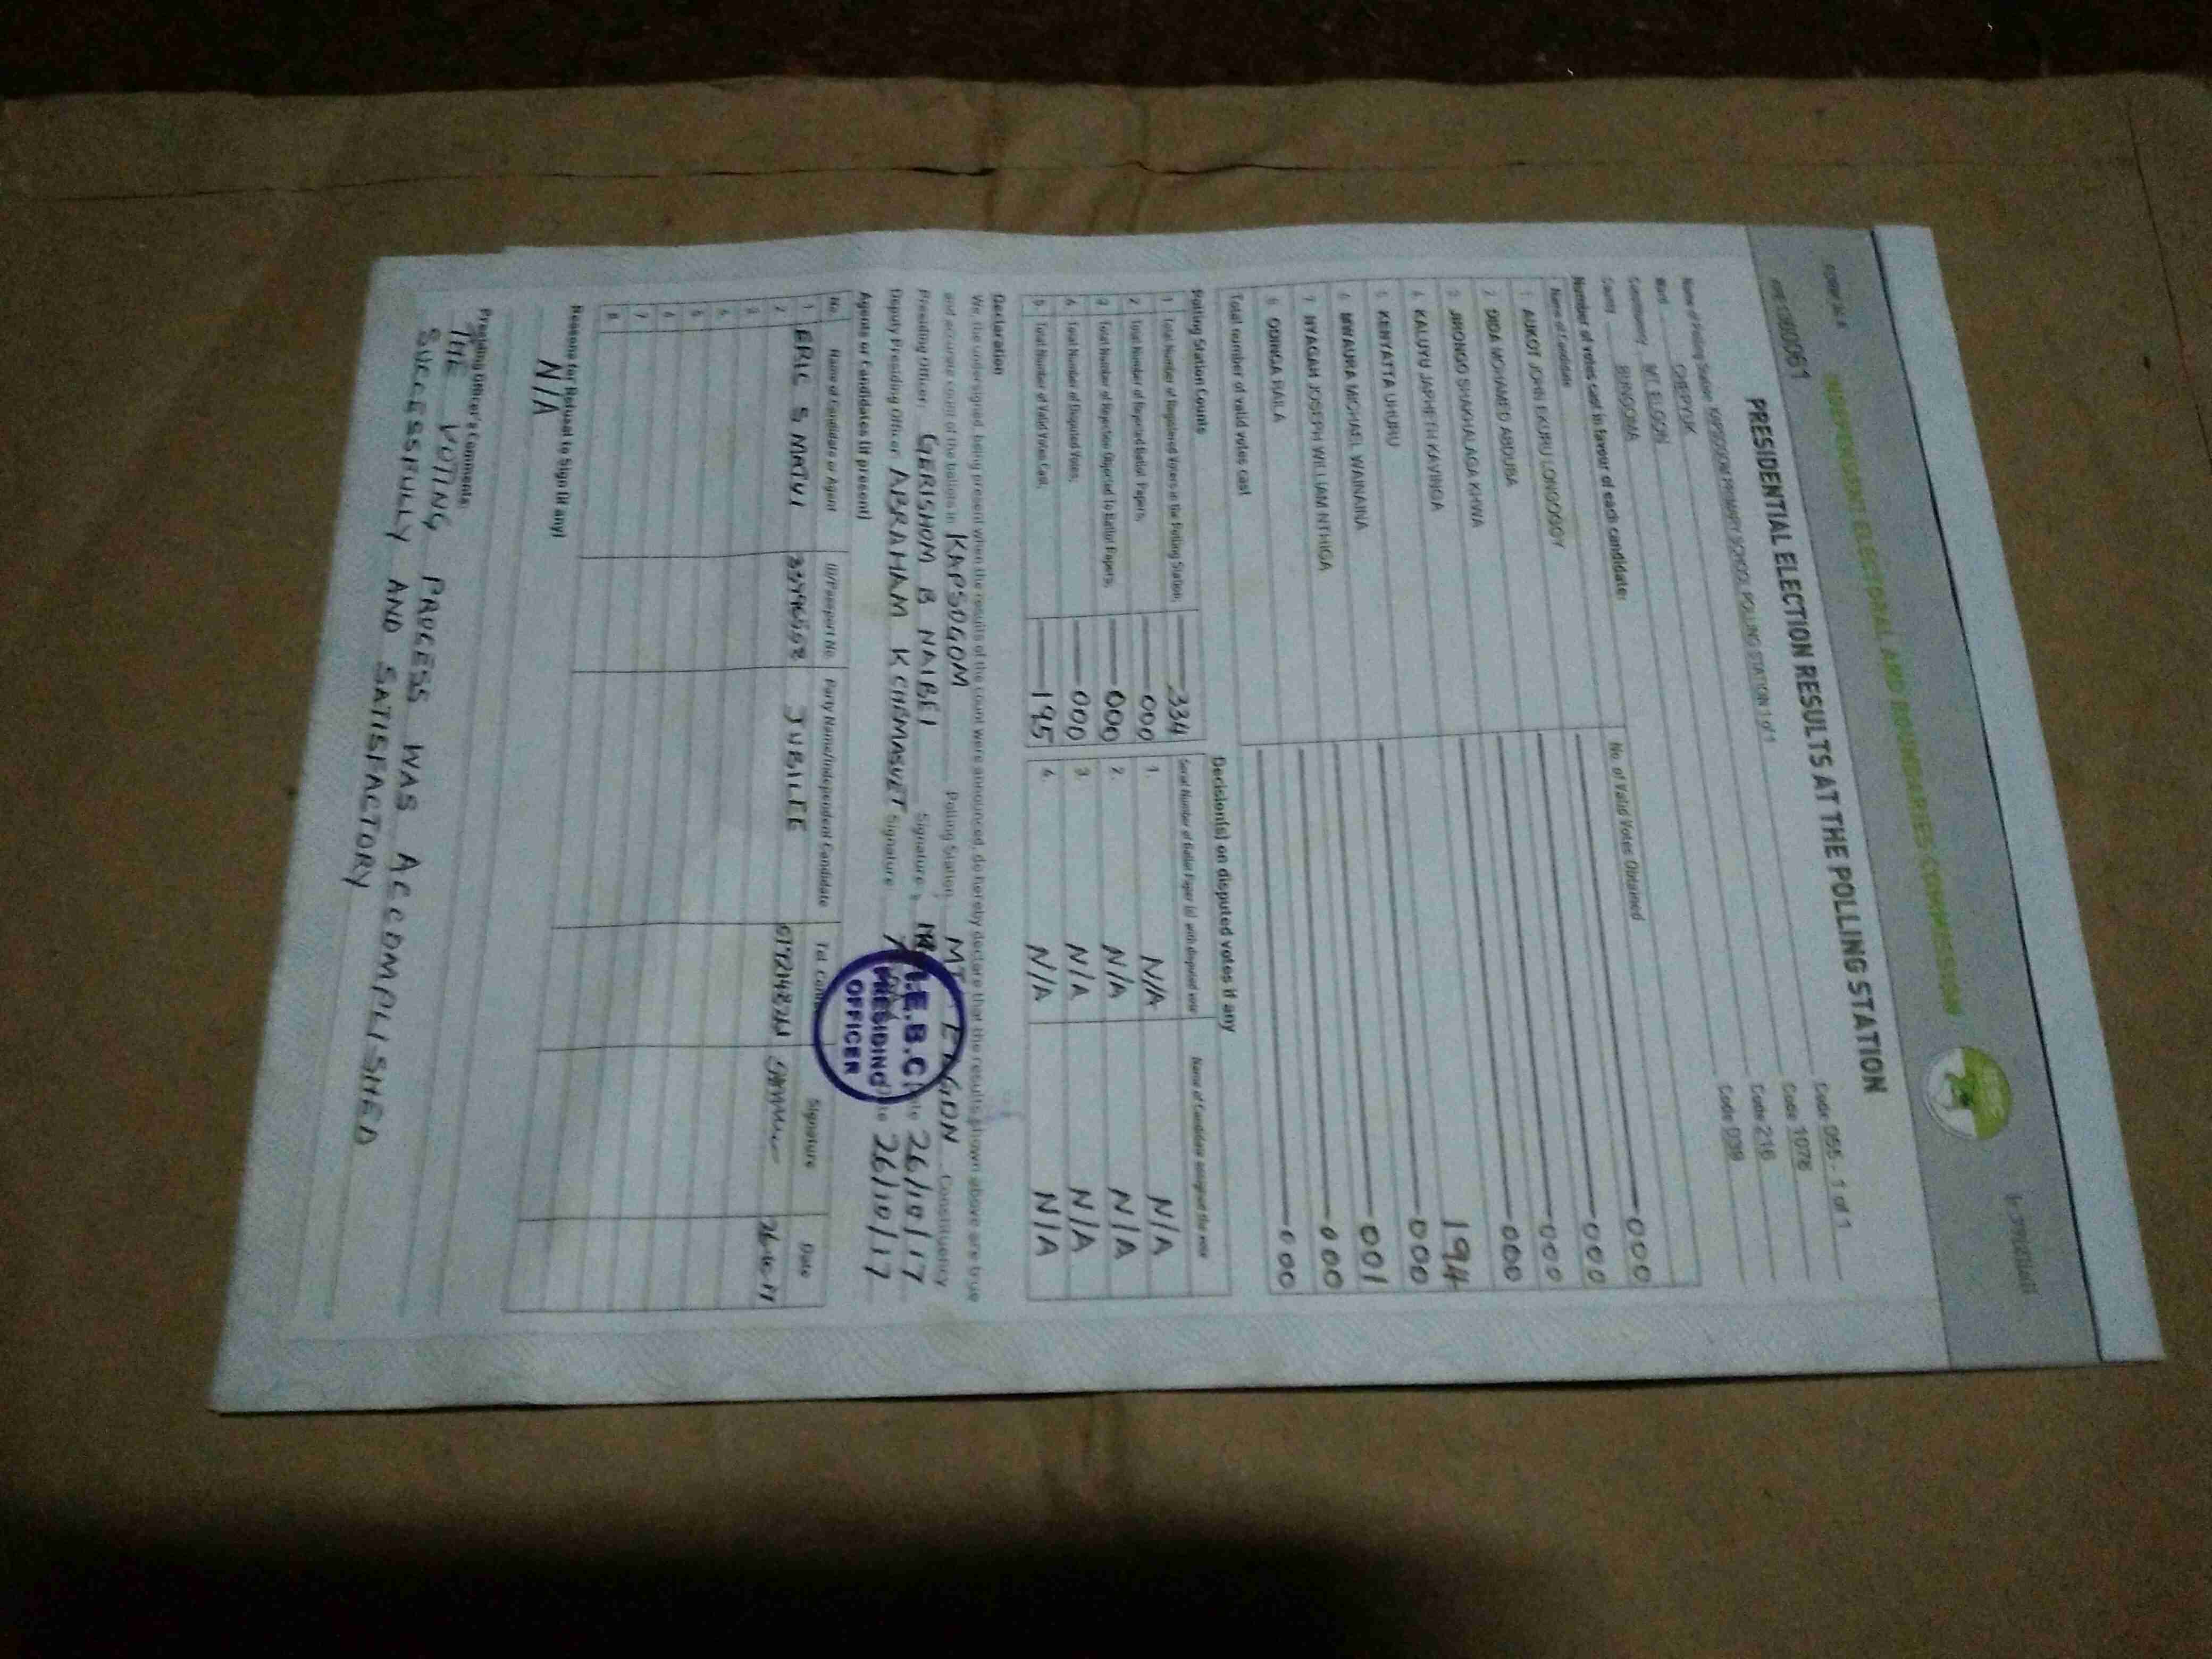 INDEPENDENT ELECTORAL AND BOUNDARIES COMMISSION
PRESIDENTIAL ELECTION RESULTS AT THE POLLING STATION
Name of Polling Station KAPSOGOM PRIMARY SCHOOL POLLING STATION 1 of 1 Code 055 - 1 of 1
Ward CHEPYUK Code 1078
Constituency MT ELGON Code 216
County BUNGOMA Code 039
Number of votes cast in favour of each candidate:
Name of Candidate No. of Valid Votes Obtained
1 AUKOT JOHN EKURU LONGOGGY 000
2 DIDA MOHAMED ABDUBA 000
3 JIRONGO SHAKHALAGA KHWA 000
4 KALUYU JAPHETH KAVINGA 000
5 KENYATTA UHURU 194
6 MWAURA MICHAEL WAINAINA 000
7 NYAGAH JOSEPH WILLIAM NTHIGA 001
8 ODINGA RAILA 000
Total number of valid votes cast 000
Polling Station Counts
1 Total Number of Registered Voters in the Polling Station; 334
2 Total Number of Rejected Ballot Papers; 000
3 Total Number of Rejection Objected To Ballot Papers; 000
4 Total Number of Disputed Votes; 000
5 Total Number of Valid Votes Cast; 195
Decision(s) on disputed votes if any
Serial Number of Ballot Paper (s) with disputed vote Name of Candidate assigned the vote
1. N/A N/A
2. N/A N/A
3. N/A N/A
4. N/A N/A
Declaration
We the undersigned, being present when the results of the count were announced, do hereby declare that the results shown above are true
and accurate count of the ballots in KAPSOGOM Polling Station, MT ELGON Constituency
Presiding Officer; GERISHOM B NAIBEI Signature Date 26/10/17
Deputy Presiding Officer ABRAHAM K CHEMASUET Signature Date 26/10/17
I.E.B.C
PRESIDING
OFFICER
Agents or Candidates (if present)
No. Name of Candidate or Agent ID/Passport No. Party Name/Independent Candidate Tel. Signature Date
1 ERIC S MATUI JUBILEE
2
3
4
5
6
7
8
Reasons for Refusal to Sign (if any)
N/A
Presiding Officer's Comments:
THE VOTING PROCESS WAS ACCOMPLISHED
SUCCESSFULLY AND SATISFACTORY